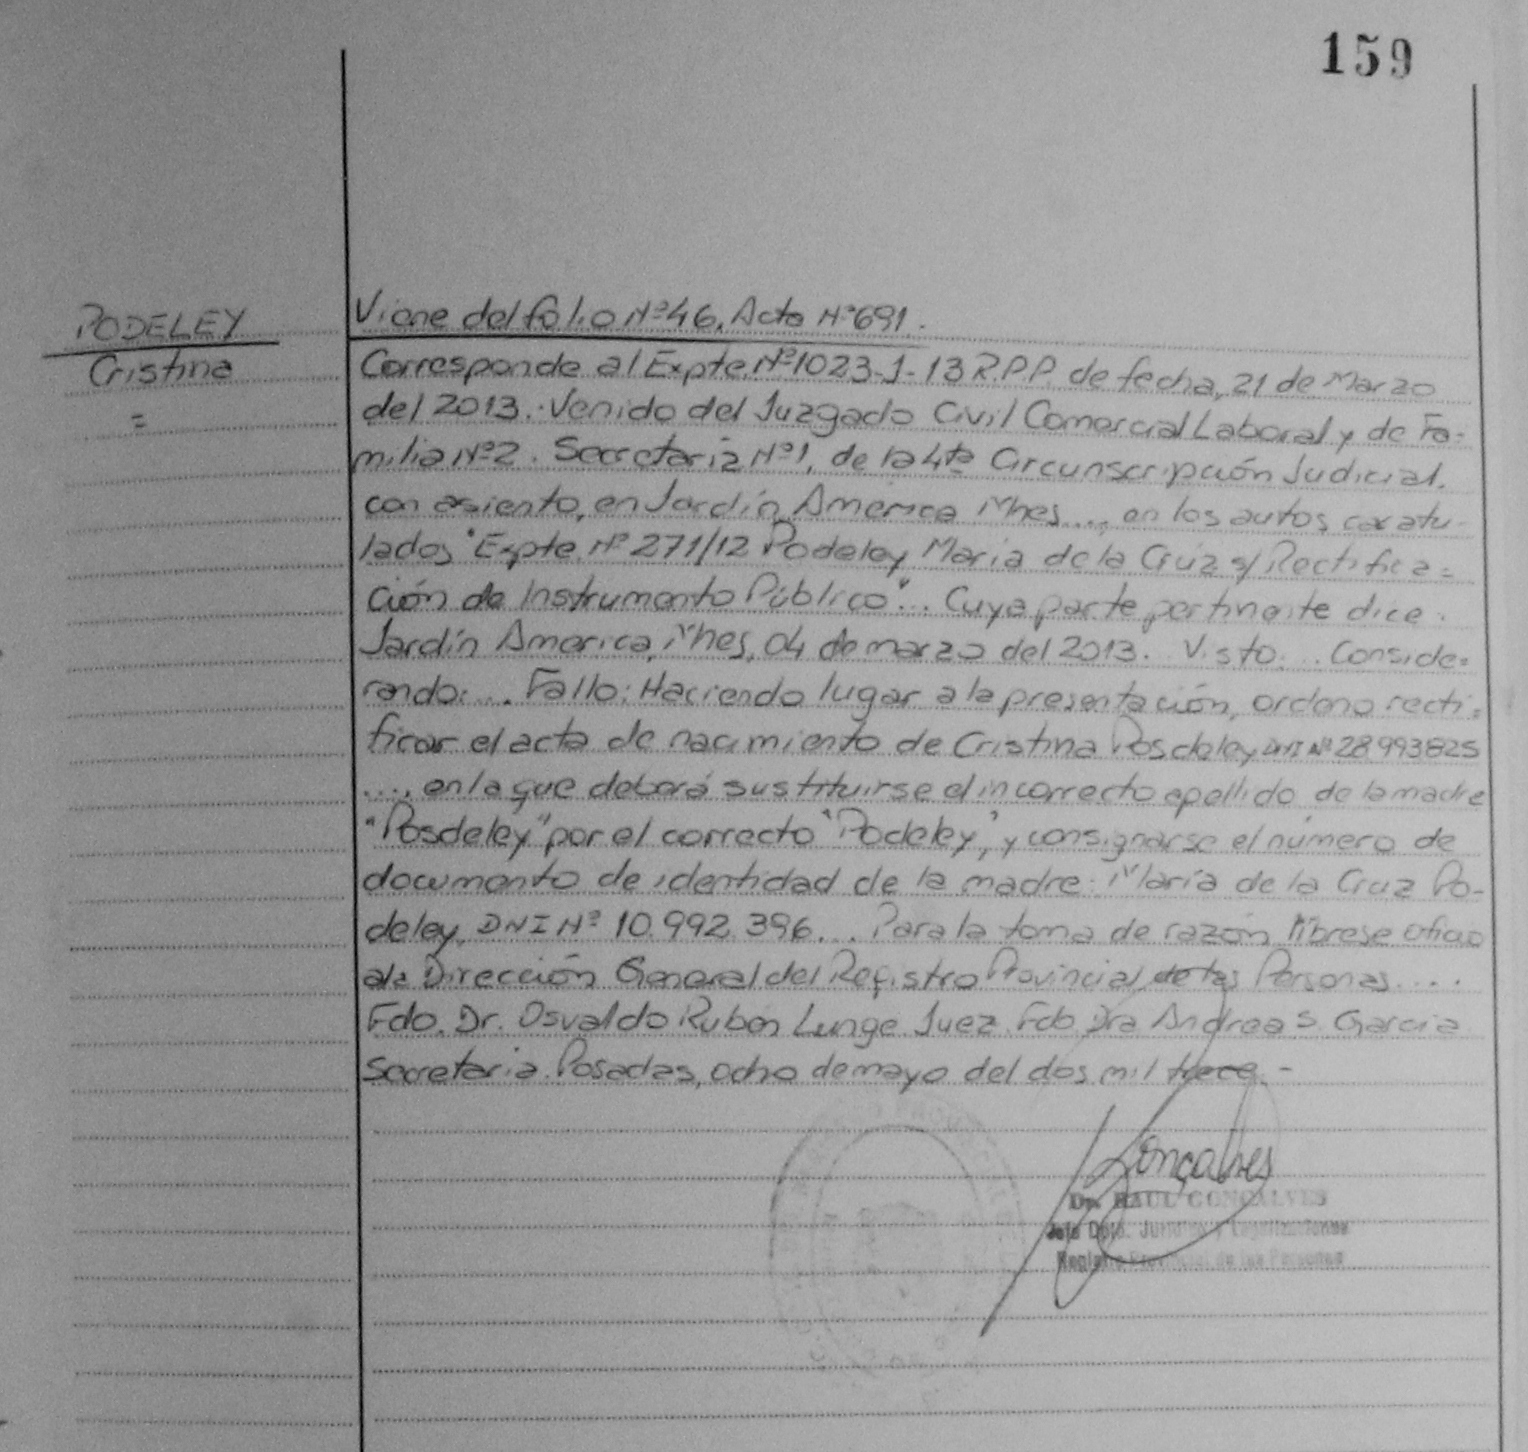 159
PODELEY
Cristina
=
Viene del folio Nº 46, Acta Nº 691.
Corresponde al Expte. Nº 1023-J-13 R.P.P. de fecha, 21 de Marzo
del 2013.- Venido del Juzgado Civil Comercial Laboral y de Fa-
milia Nº 2. Secretaria Nº 1, de la 4ta Circunscripción Judicial.
con asiento, en Jardín América Mnes..., en los autos caratu-
lados "Expte. Nº 271/12 Podeley Maria de la Cruz s/ Rectifica=
ción de Instrumento Público"... Cuya parte pertinente dice.
Jardín America, Mnes, 04 de marzo del 2013. Visto:... Conside=
rando:... Fallo: Haciendo lugar a la presentación, ordeno recti=
ficar el acta de nacimiento de Cristina Posdeley DNI Nº 28993825
...., en la que deberá sustituirse el incorrecto apellido de la madre
"Posdeley" por el correcto "Podeley", y consignarse el número de
documento de identidad de la madre: María de la Cruz Po-
deley, DNI Nº 10.992.396... Para la toma de razón líbrese oficio
a la Dirección General del Registro Provincial de las Personas....
Fdo. Dr. Osvaldo Ruben Lunge Juez. Fdo Dra Andrea S. Garcia
Secretaria. Posadas, ocho de mayo del dos mil trece.-
Gonçalves
Dr. RAUL GONÇALVES
Jefe Dpto. Jurídico y Legalizaciones
Registro Provincial de las Personas